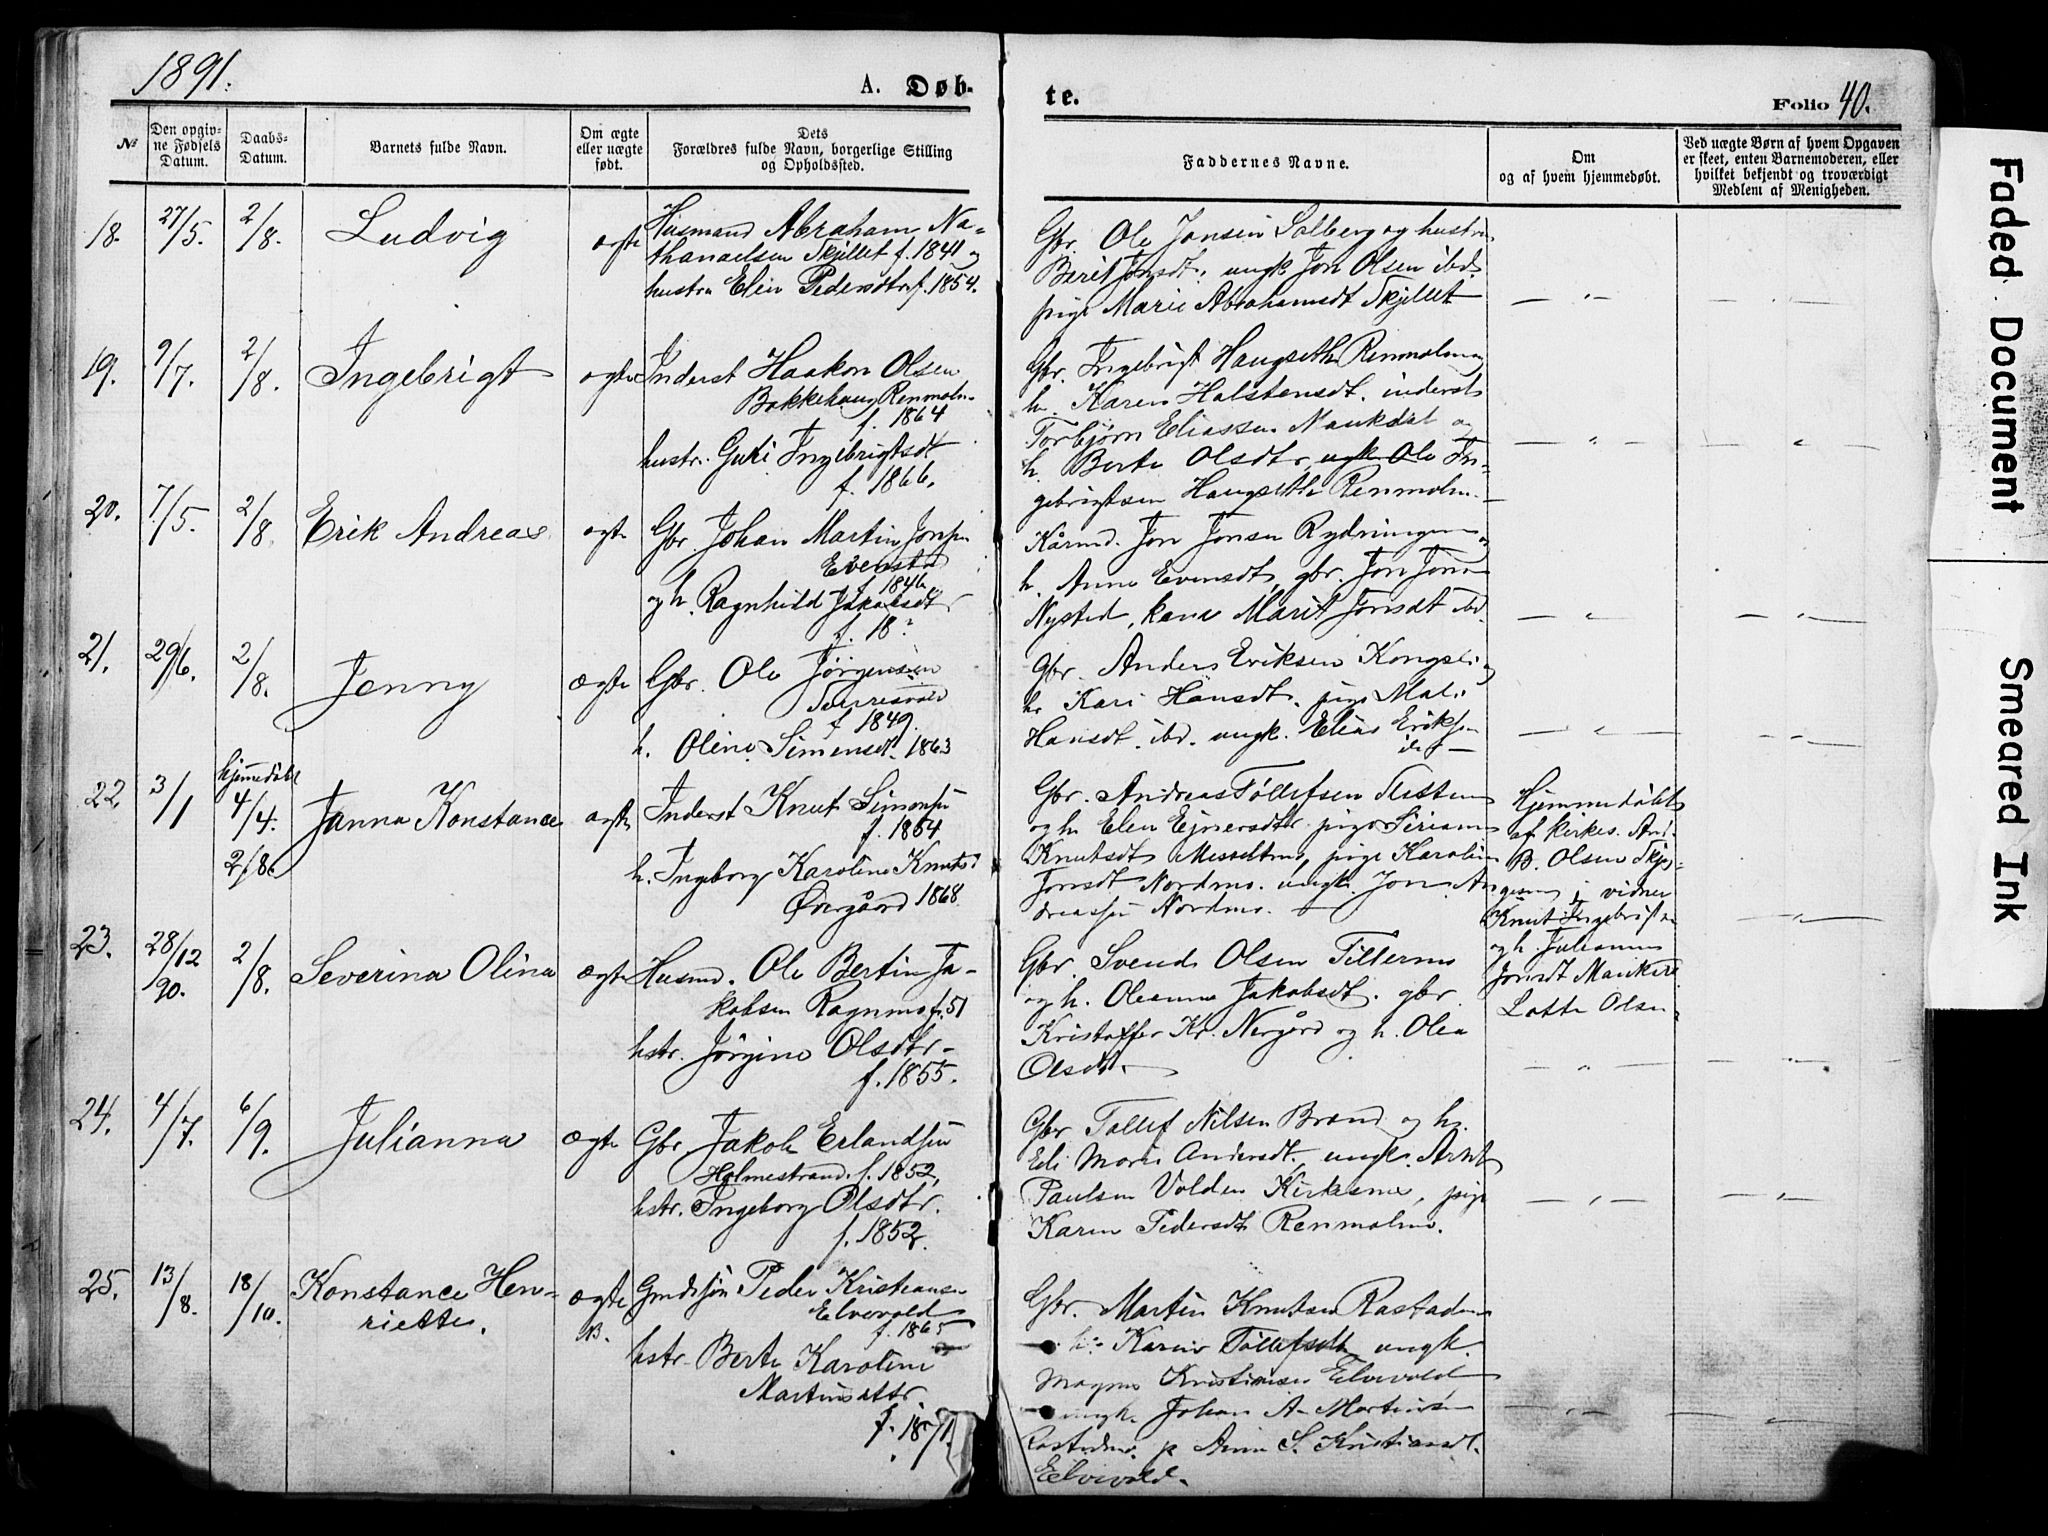 1891.
A. Døb-
te.
Folio 40.
№
Den opgiv-
ne Fødsels
Datum.
Daabs-
Datum.
Barnets fulde Navn.
Om ægte
eller uægte
født.
Dets
Forældres fulde Navn, borgerlige Stilling
og Opholdssted.
Faddernes Navne.
Om
og af hvem hjemmedøbt.
Ved uægte Børn af hvem Opgaven
er skeet, enten Barnemoderen, eller
hvilket bekjendt og troværdigt
Medlem af Menigheden.
18.
27/5.
2/8.
Ludvig
ægte
Husmand Abraham Na-
thanaelsen Skjillet f. 1841 og
hustru Elen Pedersdtr f. 1854.
Gbr. Ole Jonsen Solberg og hustru
Berit Jonsdt. ungk. Jon Olsen ibd.
pige Marie Abrahamsdt Skjillet
19.
9/7.
2/8.
Ingebrigt
ægte
Inderst Haakon Olsen
Bakkehaug Renmoln.
f. 1864
hustr. Guri Ingebrigtsdt
f. 1866.
Gbr. Ingebrigt Haugseth Renmolen og
h. Karen Halstensdt. inderst
Torbjørn Eliassen Maukdal og
h. Berte Olsdtr, ungk Ole In-
gebrigtsen Haugseth Renmolm.
20.
7/5.
2/8
Erik Andreas
ægte
Gbr Johan Martin Jonsen
Evenstad
f. 1846
og h. Ragnhild Jakobsdt
f. 18 ?
Kårmd. Jon Jonsen Rydningen og
h. Anne Evensdt, gbr. Jon Jons
Nysted, kone Marit Jonsdt ibd.
21.
29/6.
2/8.
Jenny
ægte
Gbr. Ole Jörgensen
f 1849.
h. Oline Simensdt. 1863
Gbr. Anders Eriksen Kongsli og
h. Kari Hansdt. pige Mali
Hansdt. ibd. ungk. Elias Eriksen
ibd
22.
3/1
hjemmedöbt
4/4.
2/8.
Janna Konstance
ægte
Inderst Knut Simonsen
f. 1864
h. Ingeborg Karoline Knuts
Övergård 1868
Gbr. Andreas Töllefsen Flisten
og h Elen Ejnersdtr pige Seriann
Knutsdt Messeltmo, pige Karoline
Jonsdt Nordmo. ungk. Jon An-
dreassen Nordmo.
Hjemmedöbt
af kirkes. And.
B. Olsen Skjæg-
gesnes, vidner
Knut Ingebrigtsen
og h. Julianna
Jonsdt Maukdal
Lotte Olsen
23.
28/12
90.
2/8.
Severina Olina
ægte
Husmd. Ole Bertin Ja-
kobsen Rognmo f. 51
hstr. Jörgine Olsdtr.
f. 1855.
Gbr. Svend Olsen Tillermo
og h. Oleanna Jakobsdt. gbr.
Kristoffer Kr. Nergård og h. Olea
Olsdt.
24.
4/7.
6/9.
Julianna
ægte
Gbr. Jakob Erlandsen
Holmestrand f. 1852,
hstr. Ingeborg Olsdtr.
f. 1852.
Gbr Tollef Nilsen Brand og h.
Edi Marie Andersdt, ungk. Arnt
Paulsen Volden Kirkesnes, pige
Karen Pedersdt Renmolmo.
25.
13/8.
18/10.
Konstance Hen-
riette.
ægte
NB.
Gmdssön Peder Kristiansen
Elvevold
f. 1865
hstr. Berte Karoline
Martinsdttr
f. 1871.
Gbr. Martin Knutsen Rostadmo
h. Karen Töllefsdt ungk.
Magnus Kristiansen Elvevold
ungk. Johan A. Martinsen
Rostadmo, p Anne S. Kristiansdt.
Elvevold.
Faded Document
Smeared Ink